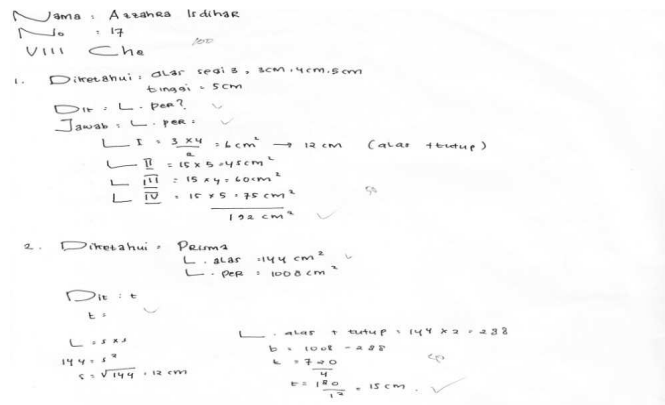 Nama : Azzahra Irdihar
No : 17
VIII Che
100
1. Diketahui : alas segi 3, 3cm, 4cm, 5cm
tinggi = 5cm
Dit : L. per?
Jawab : L. per :
L I = 3 x 4 / 2 = 6 cm² → 12 cm (alas + tutup)
L II = 15 x 5 = 45cm²
L III = 15 x 4 = 60cm²
L IV = 15 x 5 = 75 cm²
192 cm²
2. Diketahui = Prisma
L. alas = 144 cm²
L. per = 1008 cm²
Dit : t
t =
L = s x s
144 = s²
s = √144 = 12 cm
L. alas + tutup = 144 x 2 = 288
b = 1008 - 288
t = 720 / 4
t = 180 / 12 = 15 cm.